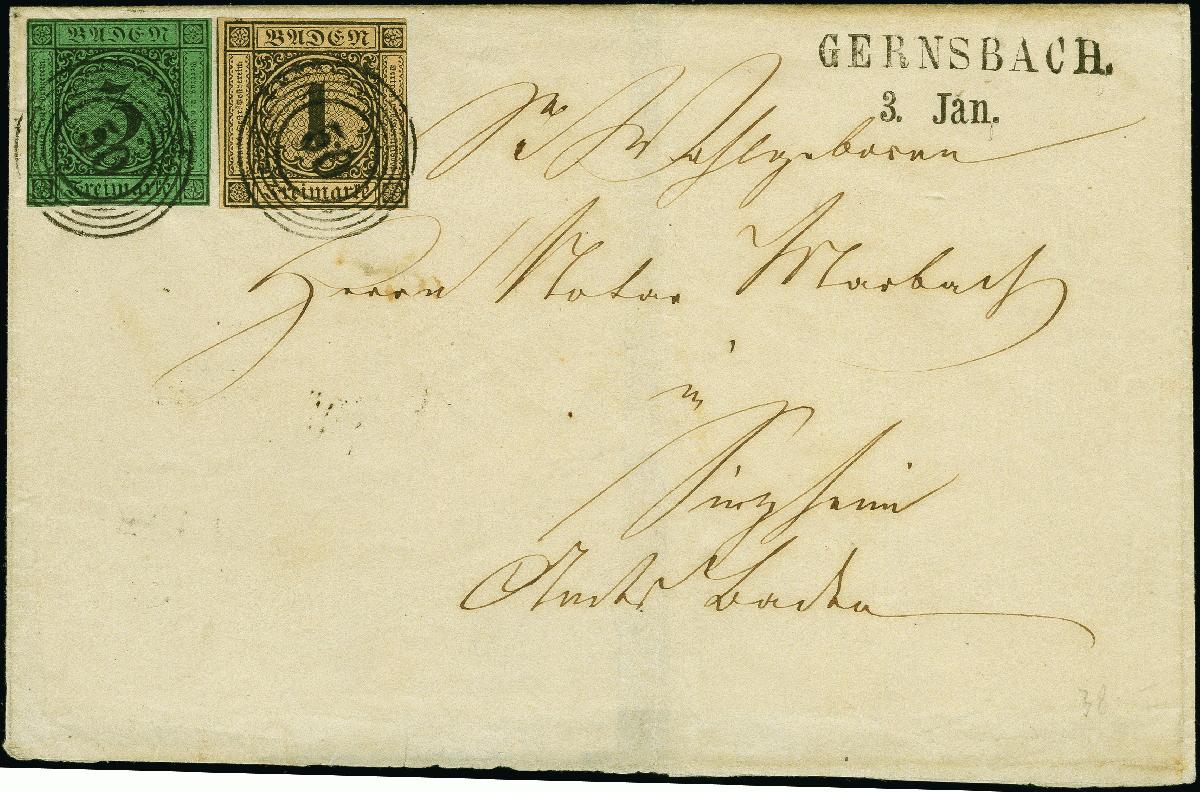 BADEN
3
Freimarke
BADEN
1
Freimarke
GERNSBACH.
3. Jan.
Sr Wohlgeboren
Herrn Notar Marbach
in
Sinzheim
Amts Baden
38